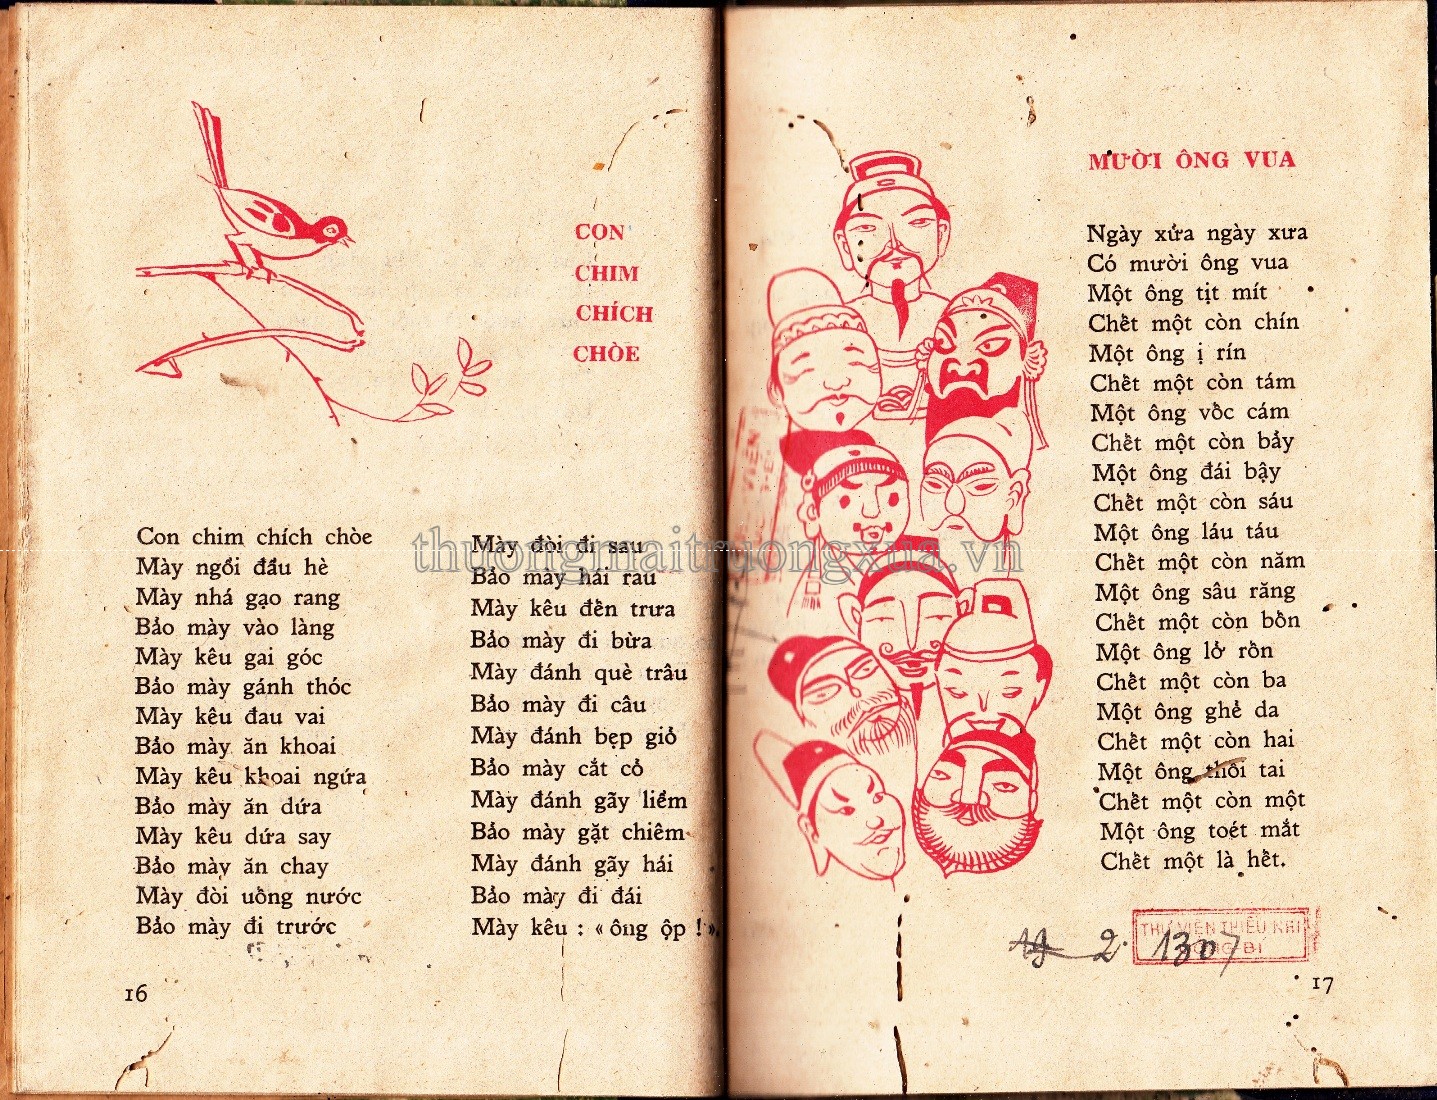 CON
CHIM
CHÍCH
CHÒE
Con chim chích chòe
Mày ngồi đầu hè
Mày nhá gạo rang
Bảo mày vào làng
Mày kêu gai góc
Bảo mày gánh thóc
Mày kêu đau vai
Bảo mày ăn khoai
Mày kêu khoai ngứa
Bảo mày ăn dứa
Mày kêu dứa say
Bảo mày ăn chay
Mày đòi uống nước
Bảo mày đi trước
Mày đòi đi sau
Bảo mày hái rau
Mày kêu đến trưa
Bảo mày đi bừa
Mày đánh què trâu
Bảo mày đi câu
Mày đánh bẹp giỏ
Bảo mày cắt cỏ
Mày đánh gãy liềm
Bảo mày gặt chiêm
Mày đánh gãy hái
Bảo mày đi đái
Mày kêu : « ông ộp ! ».
16
MƯỜI ÔNG VUA
Ngày xửa ngày xưa
Có mười ông vua
Một ông tịt mít
Chết một còn chín
Một ông ị rín
Chết một còn tám
Một ông vốc cám
Chết một còn bảy
Một ông đái bậy
Chết một còn sáu
Một ông láu táu
Chết một còn năm
Một ông sâu răng
Chết một còn bốn
Một ông lở rốn
Chết một còn ba
Một ông ghẻ da
Chết một còn hai
Một ông thối tai
Chết một còn một
Một ông toét mắt
Chết một là hết.
THƯ VIỆN THIẾU NHI
2. 1307
17
thuongmaitruongxua.vn